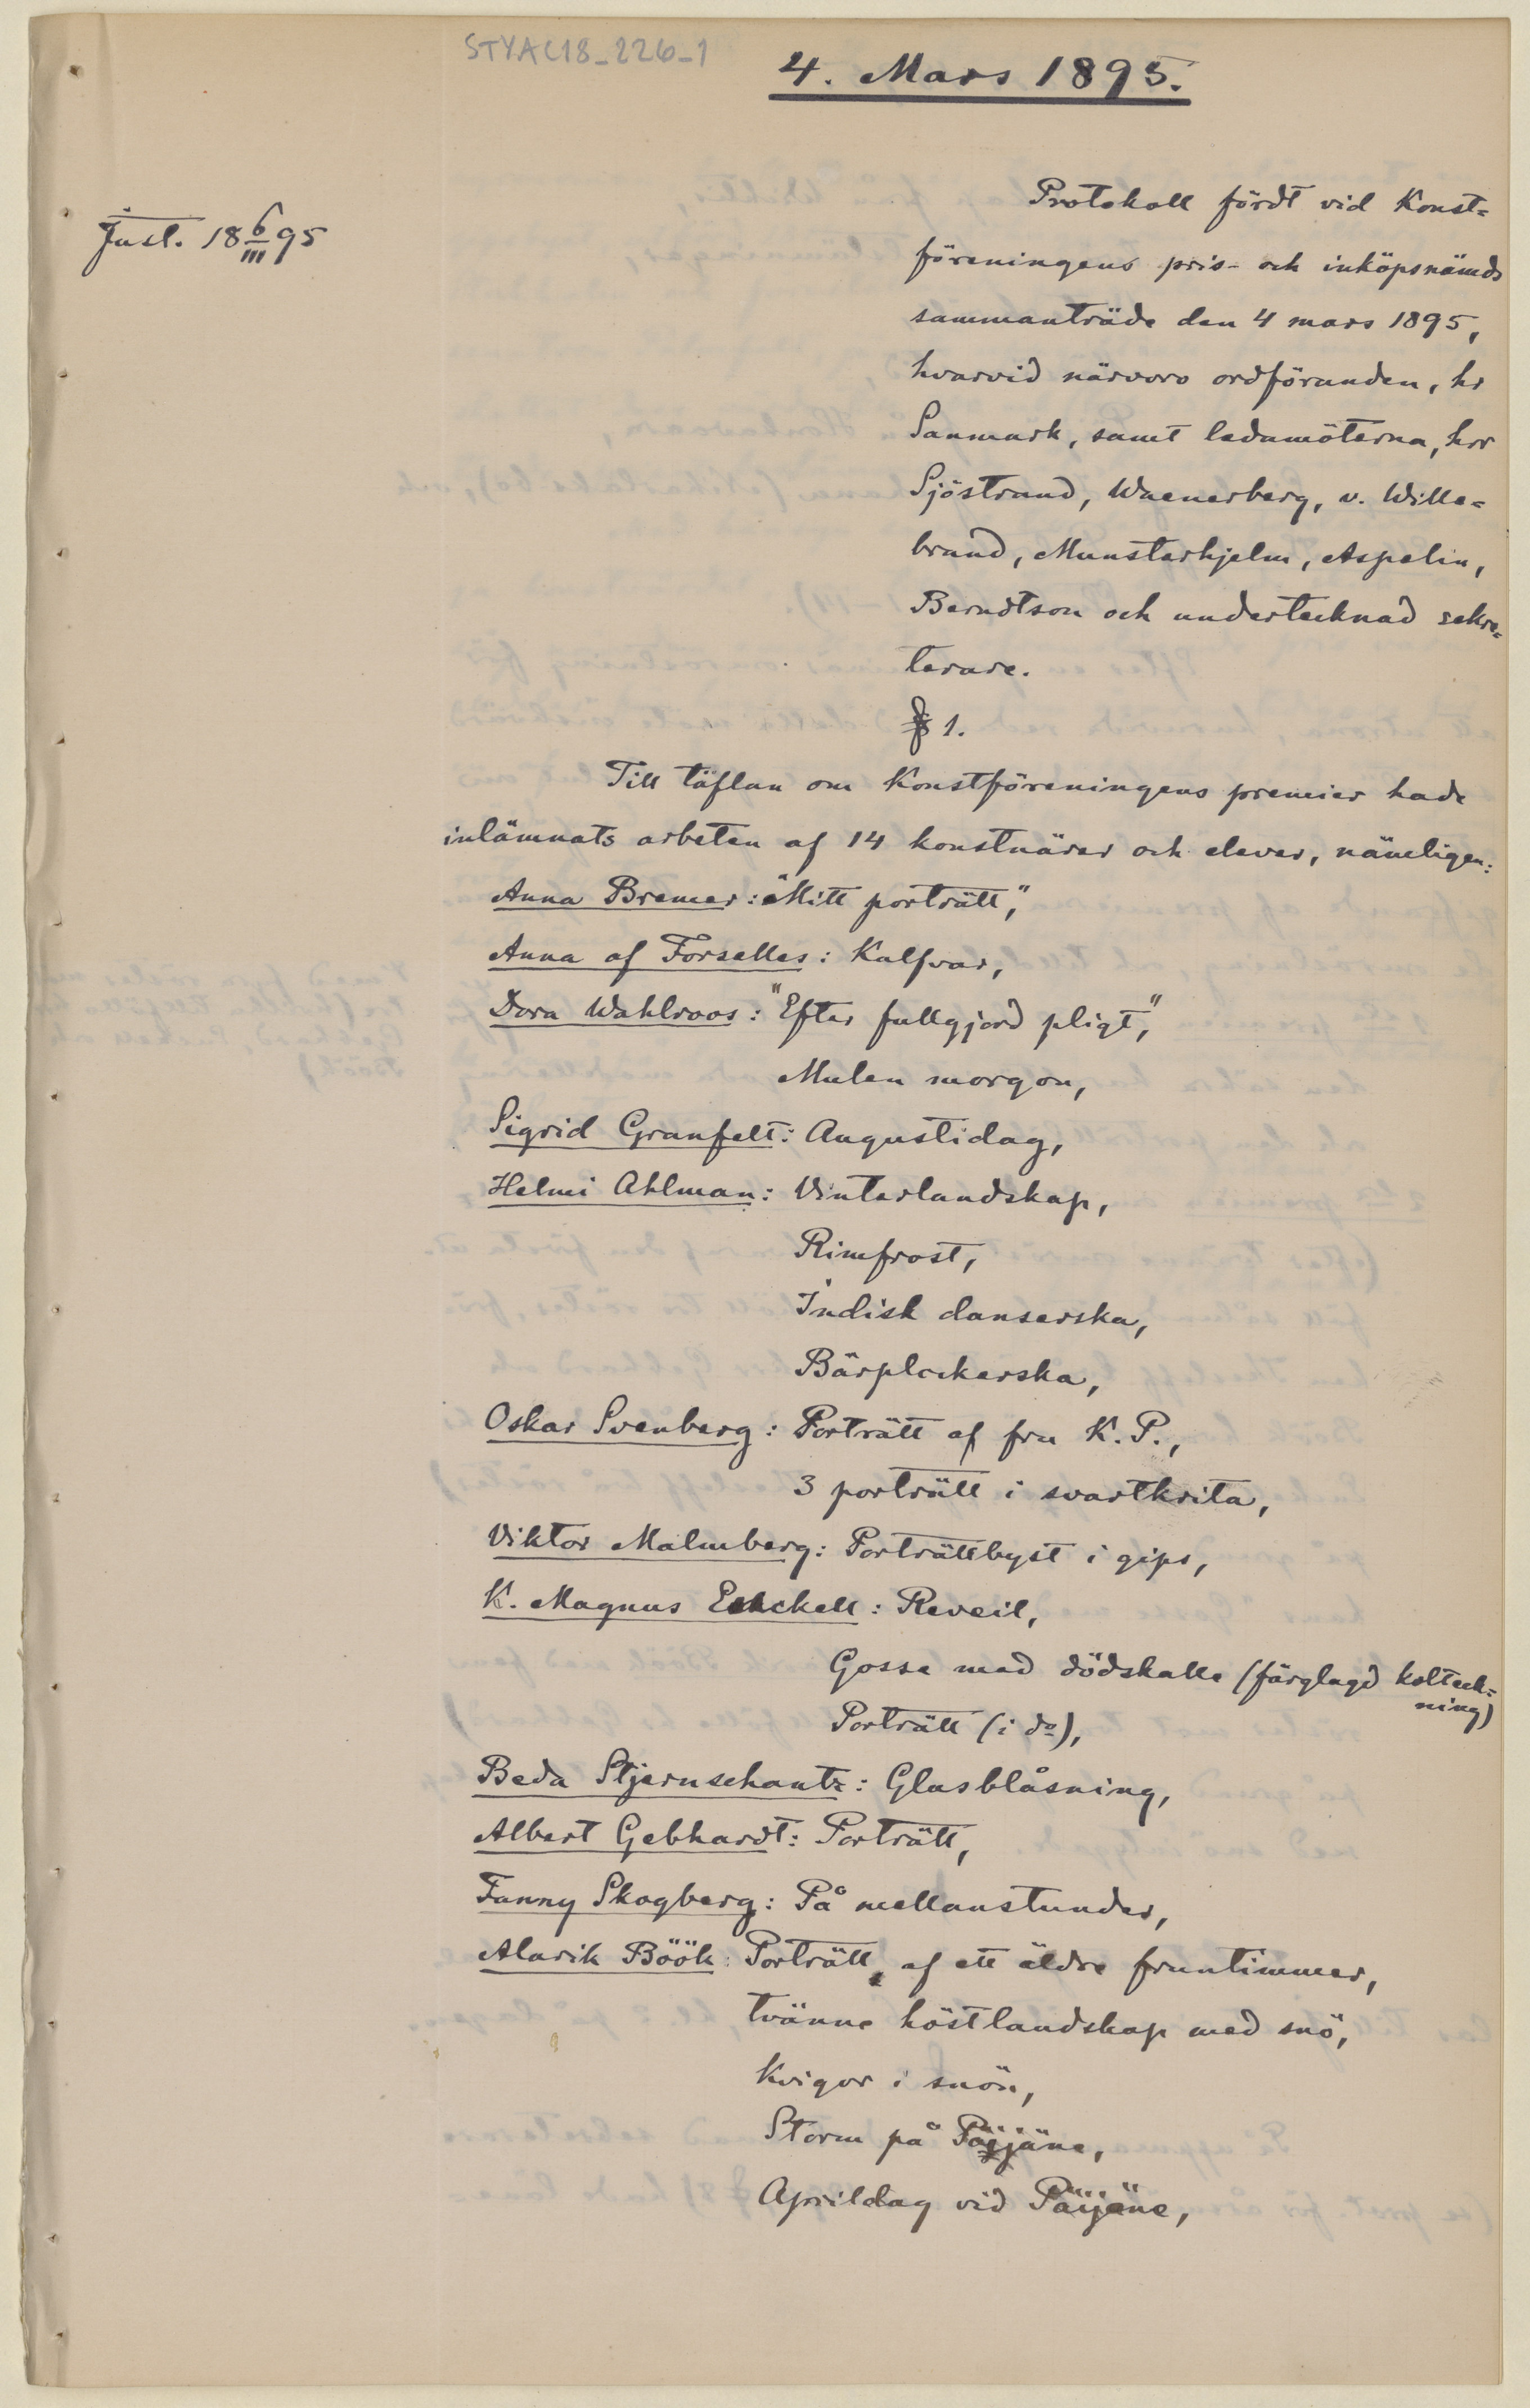 STYAC18_226_1
4. Mars 1895.
Just. 18 6/III 95
Protokoll fördt vid Konst=
föreningens pris- och inköpsnämds
sammanträde den 4 mars 1895,
hvarvid närvoro ordföranden, hr
Sanmark, samt ledamöterna, hrr
Sjöstrand, Waenerberg, v. Wille=
brand, Munsterhjelm, Aspelin,
Berndtson och undertecknad sekre=
terare.
§ 1.
Till täflan om Konstföreningens premier hade
inlämnats arbeten af 14 konstnärer och elever, nämligen:
Anna Bremer: "Mitt porträtt",
Anna af Forselles: Kalfvar,
Dora Wahlroos: "Efter fullgjord pligt",
Mulen morgon,
Sigrid Granfelt: Augustidag,
Helmi Ahlman: Vinterlandskap,
Rimfrost,
Indisk danserska,
Bärplockerska,
Oskar Svenberg: Porträtt af fru K. P.,
3 porträtt i svartkrita,
Viktor Malmberg: Porträttbyst i gips,
K. Magnus Enckell: Reveil,
Gosse med dödskalle (färglagd kolteck=
ning)
Porträtt (i do),
Beda Stjernschantz: Glasblåsning,
Albert Gebhardt: Porträtt,
Fanny Skogberg: På mellanstunder,
Alarik Böök: Porträtt af ett äldre fruntimmer,
tvänne höstlandskap med snö,
Kvigor i snön,
Storm på Päijäne,
Aprildag vid Päijäne,